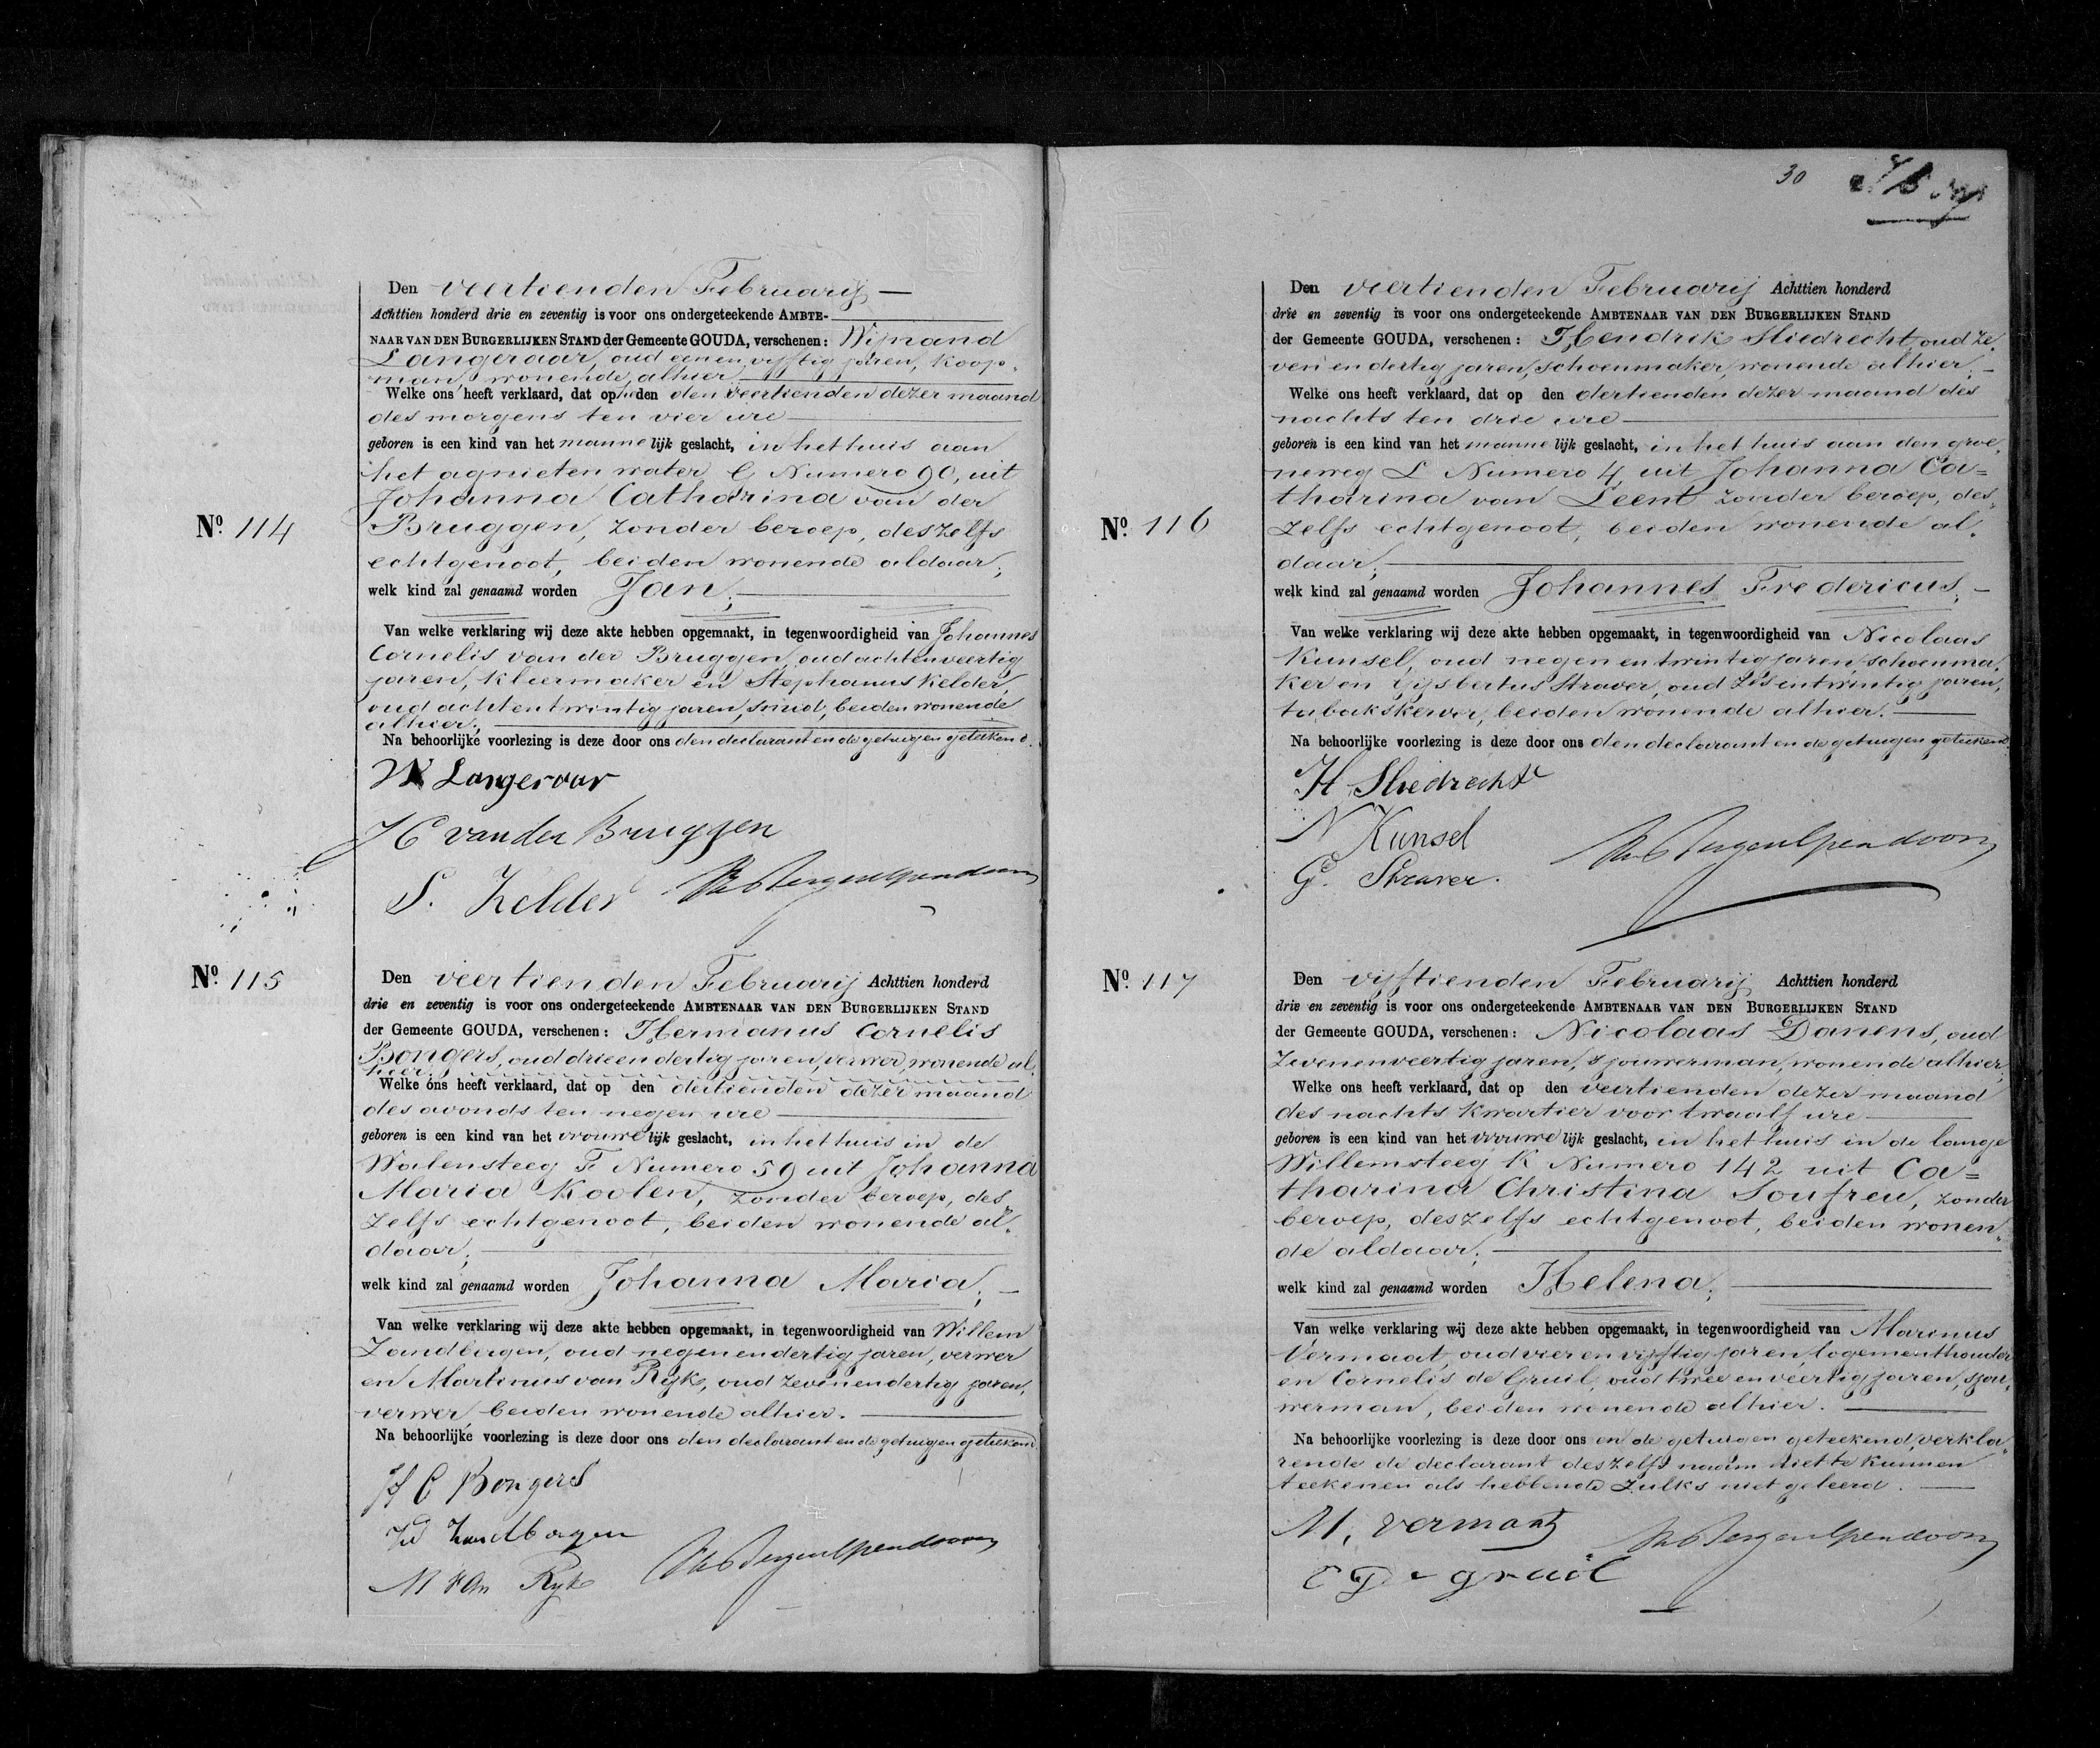 Den veertienden Februarij
Achttien honderd drie en zeventig is voor ons ondergeteekende AMBTE-
NAAR VAN DEN BURGERLIJKEN STAND der Gemeente GOUDA, verschenen: Wijnand
Langeraar, oud een en vijftig jaren, koop-
man, wonende alhier
Welke ons heeft verklaard, dat op heden den veertienden dezer maand
des morgens ten vier ure
geboren is een kind van het mannelijk geslacht, in het huis aan
het agnieten water C Numero 90, uit
Johanna Catharina van der
Bruggen, zonder beroep, deszelfs
echtgenoot, beiden wonende aldaar;
No. 114
welk kind zal genaamd worden Jan;
Van welke verklaring wij deze akte hebben opgemaakt, in tegenwoordigheid van Johannes
Cornelis van der Bruggen, oud achtenveertig
jaren, kleermaker en Stephanus Kelder,
oud achtentwintig jaren, smid, beiden wonende
alhier;
Na behoorlijke voorlezing is deze door ons den declarant en de getuigen geteekend.
W Langeraar
J C van der Bruggen
S. Kelder
No. 115
Den veertienden Februarij Achttien honderd
drie en zeventig is voor ons ondergeteekende AMBTENAAR VAN DEN BURGERLIJKEN STAND
der Gemeente GOUDA, verschenen: Hermanus Cornelis
Bongers, oud drieendertig jaren, verwer, wonende al-
hier.
Welke ons heeft verklaard, dat op den dertienden dezer maand
des avonds ten negen ure
geboren is een kind van het vrouwelijk geslacht, in het huis in de
Walensteeg F Numero 59 uit Johanna
Maria Koolen, zonder beroep, des-
zelfs echtgenoot, beiden wonende al-
daar;
welk kind zal genaamd worden Johanna Maria;
Van welke verklaring wij deze akte hebben opgemaakt, in tegenwoordigheid van Willem
Zandbergen, oud negenendertig jaren, verwer
en Martinus van Rijk, oud zevenendertig jaren,
verwer, beiden wonende alhier.
Na behoorlijke voorlezing is deze door ons den declarant en de getuigen geteekend.
H C Bongers
W Zandbergen
M van Ryk
30
Den veertienden Februarij Achttien honderd
drie en zeventig is voor ons ondergeteekende AMBTENAAR VAN DEN BURGERLIJKEN STAND
der Gemeente GOUDA, verschenen: Hendrik Sliedrecht, oud ze-
ven en dertig jaren, schoenmaker, wonende alhier.
Welke ons heeft verklaard, dat op den dertienden dezer maand des
nachts ten drie ure
geboren is een kind van het mannelijk geslacht, in het huis aan den groe-
neweg L Numero 4, uit Johanna Ca=
tharina van Leent zonder beroep, des-
zelfs echtgenoot, beiden wonende al-
daar;
No. 116
welk kind zal genaamd worden Johannes Fredericus;
Van welke verklaring wij deze akte hebben opgemaakt, in tegenwoordigheid van Nicolaas
Kunsel, oud negen en twintig jaren, schoenma-
ker en Gijsbertus Straver, oud zesentwintig jaren,
tabakskerver, beiden wonende alhier.
Na behoorlijke voorlezing is deze door ons den declarant en de getuigen geteekend.
H Sliedrecht
N Kunsel
G. Straver.
No. 117
Den vijftienden Februarij Achttien honderd
drie en zeventig is voor ons ondergeteekende AMBTENAAR VAN DEN BURGERLIJKEN STAND
der Gemeente GOUDA, verschenen: Nicolaas Danens, oud
zevenenveertig jaren, sjouwerman, wonende alhier;
Welke ons heeft verklaard, dat op den veertienden dezer maand
des nachts kwartier voor twaalf ure
geboren is een kind van het vrouwelijk geslacht, in het huis in de lange
Willemsteeg K Numero 142 uit Ca=
tharina Christina Soufreu, zonder
beroep, deszelfs echtgenoot, beiden wonen-
de aldaar;
welk kind zal genaamd worden Helena;
Van welke verklaring wij deze akte hebben opgemaakt, in tegenwoordigheid van Marinus
Vermaat, oud vier en vijftig jaren, logementhouder
en Cornelis de Gruil, oud twee en veertig jaren, sjou-
werman, beiden wonende alhier.
Na behoorlijke voorlezing is deze door ons en de getuigen geteekend, verkla-
rende de declarant deszelfs naam niet te kunnen
teekenen als hebbende zulks niet geleerd.
M, vermaat
C De gruil